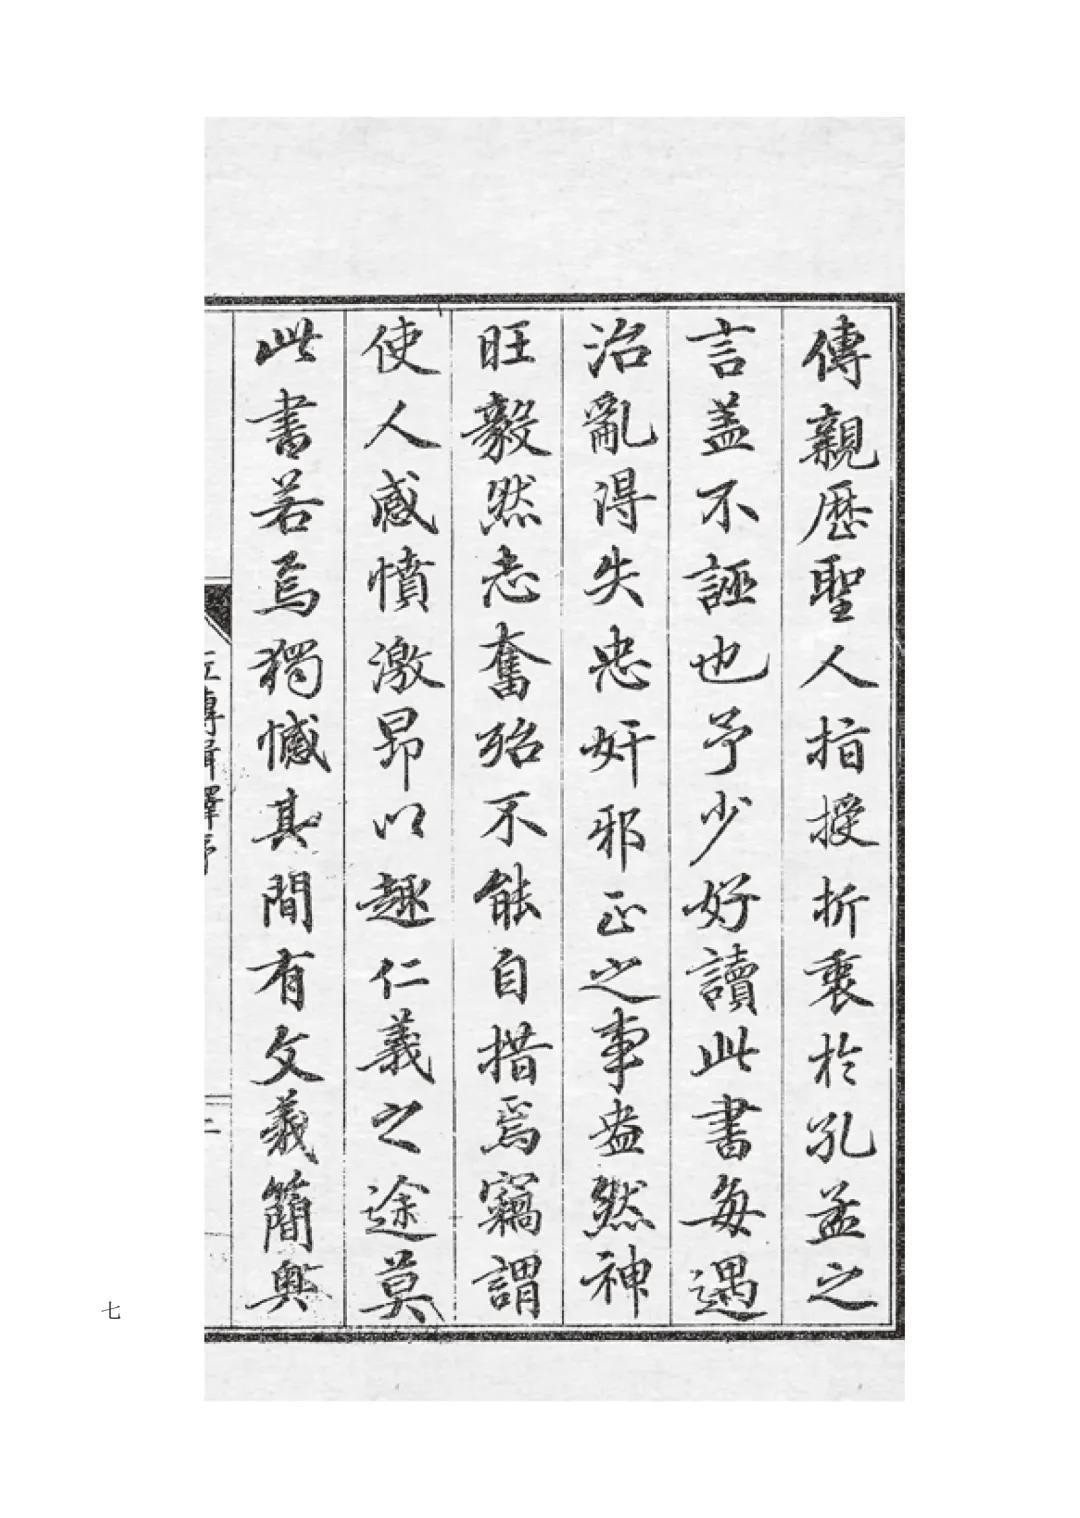 傳親歷聖人指授折衷於孔孟之
言盖不誣也予少好讀此書每遇
治亂得失忠奸邪正之事盎然神
旺毅然志奮殆不能自措焉竊謂
使人感憤激昂以趣仁義之途莫
此書若焉獨憾其間有文義簡奥
左傳輯釋序
七